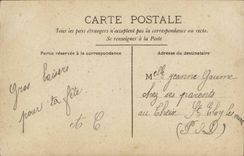 CARTE POSTALE
Tous les pays étrangers n'acceptent pas la correspondance au recto.
Se renseigner à la Poste
Partie réservée à la correspondance
Adresse du destinataire
Gros baisers
pour ta fête
et C
Melle Jeanne Gaume
chez ses parents
au Cheix St Eloy les mines
(P. D. D)